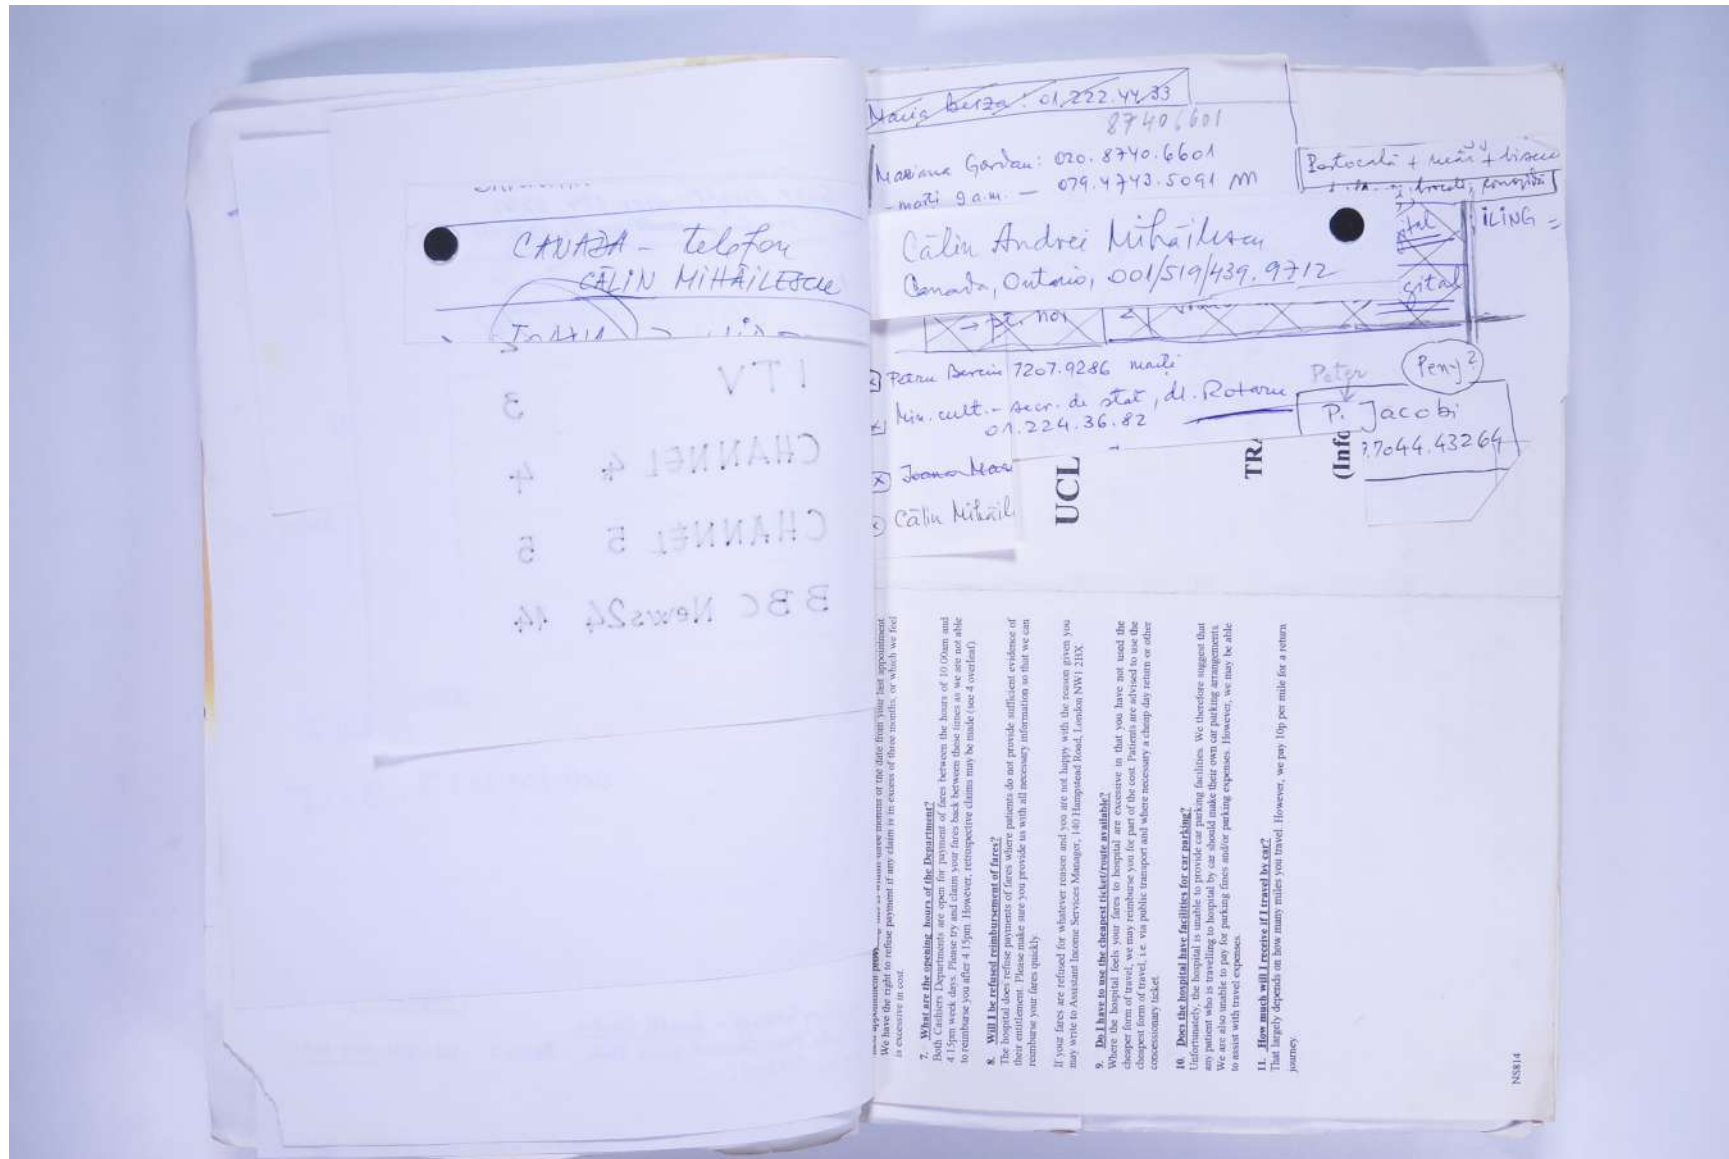 CANADA - telefon
CĂLIN MIHĂILESCU
ITV 3
CHANNEL 4 4
CHANNEL 5 5
BBC News24 14
Maria Berza: 01.222.44.33
87406601
Mariana Gordan: 020.8740.6601
- marți 9 a.m. — 079.4743.5091 m
Portocală + măr +
ILING =
Călin Andrei Mihăilescu
Canada, Ontario, 001/519/439.9712
gital
gital
→ pt. noi
Petru 7207.9286 marți
Min. cult. - secr. de stat, dl. Rotaru
01.224.36.82
Peter
Peny?
P. Jacobi
7044.43264
Ioana
Călin Mihăil
UCL
TRA
(Info
We have the right to refuse payment if any claim is in excess of three months, or which we feel
is excessive in cost.
7. What are the opening hours of the Department?
Both Cashiers Departments are open for payment of fares between the hours of 10.00am and
4.15pm week days. Please try and claim your fares back between these times as we are not able
to reimburse you after 4.15pm. However, retrospective claims may be made (see 4 overleaf).
8. Will I be refused reimbursement of fares?
The hospital does refuse payments of fares where patients do not provide sufficient evidence of
their entitlement. Please make sure you provide us with all necessary information so that we can
reimburse your fares quickly.
If your fares are refused for whatever reason and you are not happy with the reason given you
may write to Assistant Income Services Manager, 140 Hampstead Road, London NW1 2BX
9. Do I have to use the cheapest ticket/route available?
Where the hospital feels your fares to hospital are excessive in that you have not used the
cheaper form of travel, we may reimburse you for part of the cost. Patients are advised to use the
cheapest form of travel, i.e. via public transport and where necessary a cheap day return or other
concessionary ticket.
10. Does the hospital have facilities for car parking?
Unfortunately, the hospital is unable to provide car parking facilities. We therefore suggest that
any patient who is travelling to hospital by car should make their own car parking arrangements.
We are also unable to pay for parking fines and/or parking expenses. However, we may be able
to assist with travel expenses.
11. How much will I receive if I travel by car?
That largely depends on how many miles you travel. However, we pay 10p per mile for a return
journey.
NS814